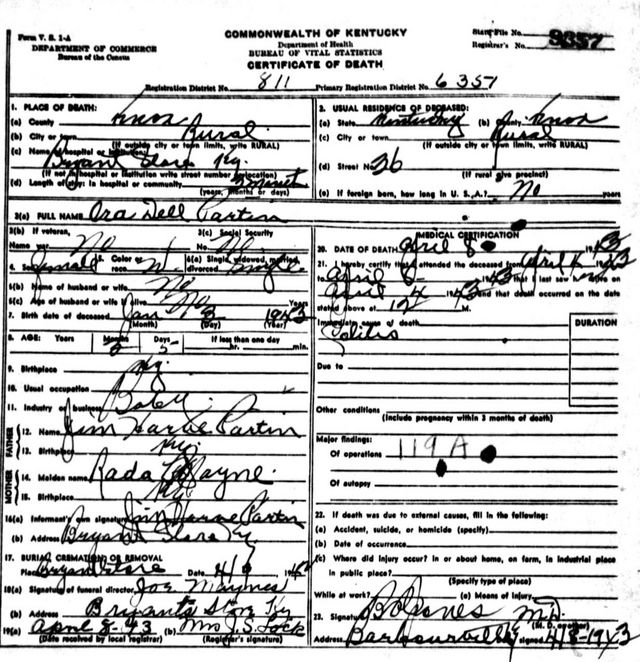 Form V. S. 1-A
DEPARTMENT OF COMMERCE
Bureau of the Census
COMMONWEALTH OF KENTUCKY
Department of Health
BUREAU OF VITAL STATISTICS
CERTIFICATE OF DEATH
State File No. 9357
Registrar's No.
Registration District No. 811 Primary Registration District No. 6357
1. PLACE OF DEATH:
(a) County Knox
(b) City or town Rural
(If outside city or town limits, write RURAL)
(c) Name of hospital or institution:
Bryant Store Ky.
(If not in hospital or institution write street number or location)
(d) Length of stay: In hospital or community
(years, months or days)
2. USUAL RESIDENCE OF DECEASED:
(a) State Kentucky (b) County Knox
(c) City or town Rural
(If outside city or town limits, write RURAL)
(d) Street No. 26
(If rural give precinct)
(e) If foreign born, how long in U. S. A.? No
3(a) FULL NAME Ora Dell Partin
3(b) If veteran, 3(c) Social Security
Name war No No. No.
4. Sex 5. Color or race W. 6(a) Single, widowed, married, divorced Single
6(b) Name of husband or wife No
6(c) Age of husband or wife if alive No Years
7. Birth date of deceased Jan 3 1943
(Month) (Day) (Year)
8. AGE: Years Months Days If less than one day
3 5 hr. min.
9. Birthplace Ky.
10. Usual occupation
11. Industry or business Baby
FATHER
12. Name Jim Harve Partin
13. Birthplace Ky.
MOTHER
14. Maiden name Rada Payne
15. Birthplace Ky.
16(a) Informant's own signature Jim Harve Partin
(b) Address Bryant Store Ky
17. BURIAL CREMATION OR REMOVAL
Place Bryant Store Date 4/9 1943
18(a) Signature of funeral director Joe Maynes
(b) Address Bryants Store Ky
19(a) April 8-43 (b) Mrs J. S. Lock
(Date received by local registrar) (Registrar's signature)
MEDICAL CERTIFICATION
20. DATE OF DEATH April 8 1943
21. I hereby certify that I attended the deceased from April 6 1943
to April 8 1943 that I last saw alive on
April 1943 and that death occurred on the date
stated above at 12 M.
Immediate cause of death DURATION
Colitis
Due to
Other conditions
(Include pregnancy within 3 months of death)
Major findings:
Of operations 119A
Of autopsy
22. If death was due to external causes, fill in the following:
(a) Accident, suicide, or homicide (specify)
(b) Date of occurrence
(c) Where did injury occur? In or about home, on farm, in industrial place
in public place?
(Specify type of place)
While at work? (e) Means of injury
23. Signature B. Jones M.D.
(M. D. or other)
Address Barbourville Ky signed 4/8-1943